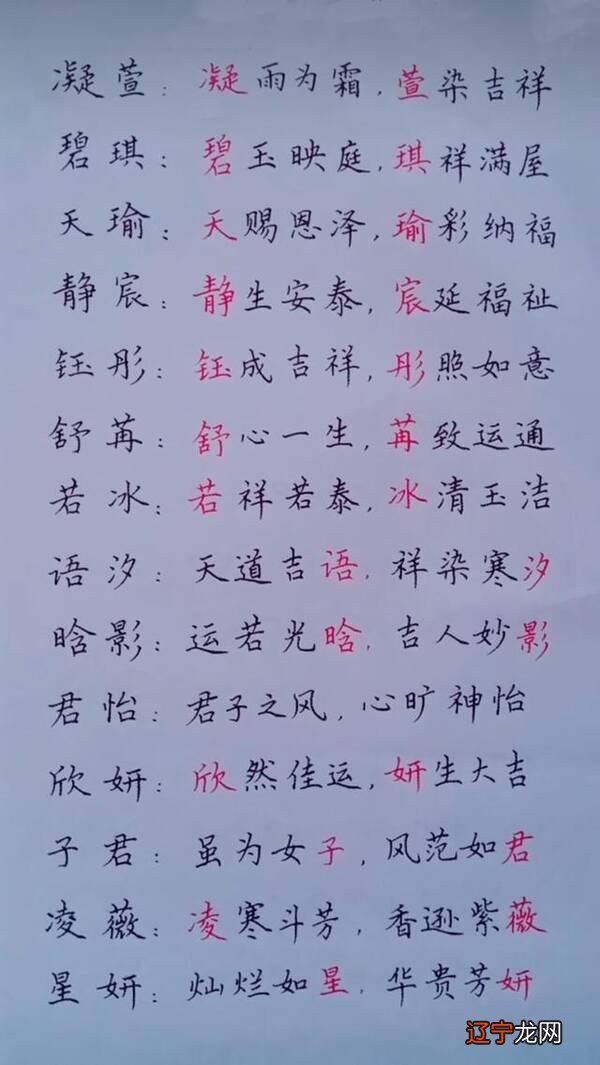 凝萱：凝雨为霜，萱染吉祥
碧琪：碧玉映庭，琪祥满屋
天瑜：天赐恩泽，瑜彩纳福
静宸：静生安泰，宸延福祉
钰彤：钰成吉祥，彤照如意
舒苒：舒心一生，苒致运通
若冰：若祥若泰，冰清玉洁
语汐：天道吉语，祥染寒汐
晗影：运若光晗，吉人妙影
君怡：君子之风，心旷神怡
欣妍：欣然佳运，妍生大吉
子君：虽为女子，风范如君
凌薇：凌寒斗芳，香逊紫薇
星妍：灿烂如星，华贵芳妍
辽宁龙网